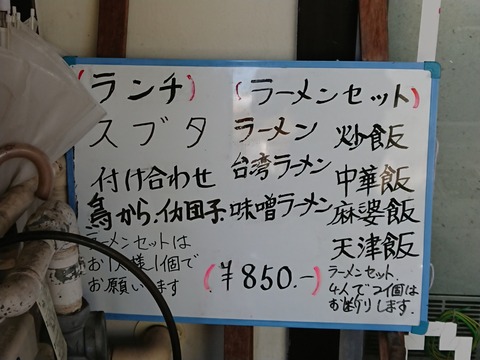 (ランチ)
スブタ
付け合わせ
鳥から、イカ団子
ラーメンセットは
お1人様1個で
お願います
(ラーメンセット)
ラーメン
台湾ラーメン
味噌ラーメン
炒飯
中華飯
麻婆飯
天津飯
(¥850.-)
ラーメンセット、
4人で2個は
お断りします。